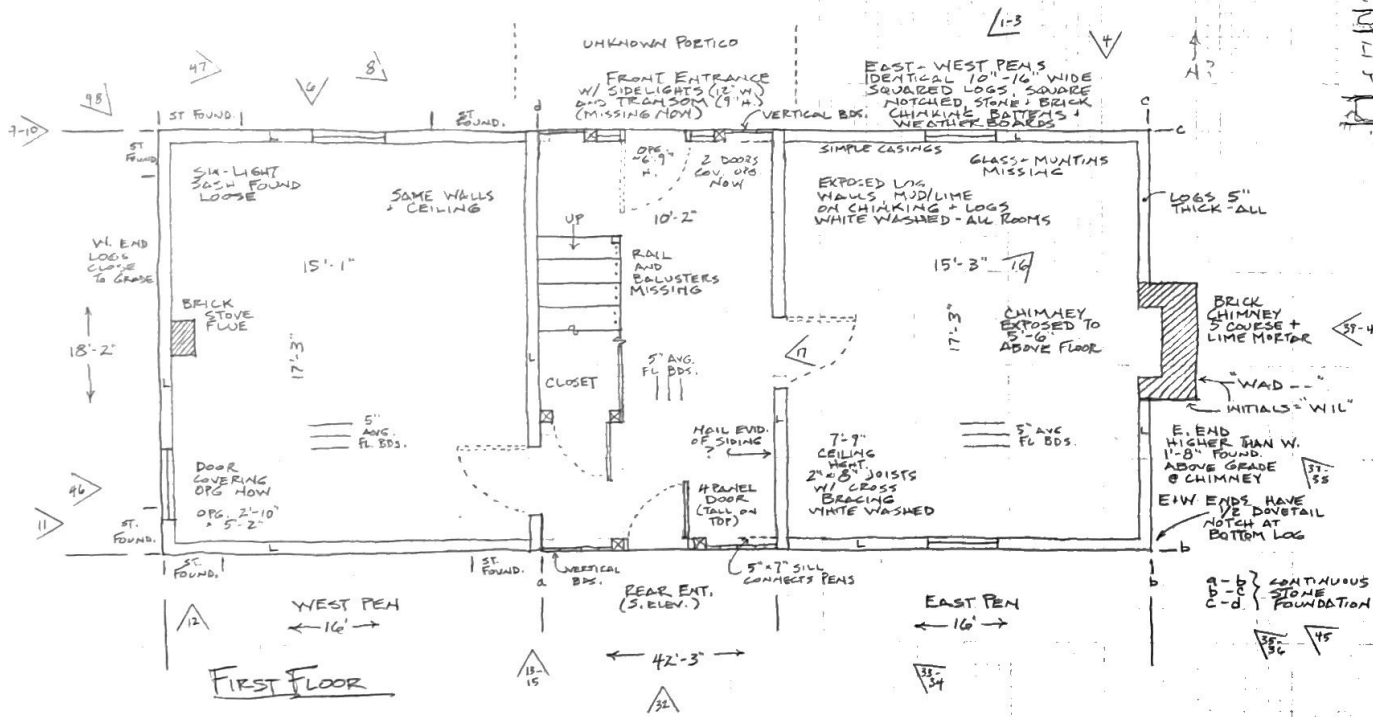 UNKNOWN PORTICO
1-3
4
47
8
6
98
N?
FRONT ENTRANCE
W/ SIDELIGHTS (12" W.)
AND TRANSOM (9" H.)
(MISSING NOW)
EAST-WEST PENS
IDENTICAL 10"-16" WIDE
SQUARED LOGS, SQUARE
NOTCHED, STONE + BRICK
CHINKING, BATTENS +
WEATHER BOARDS
VERTICAL BDS.
ST FOUND.
ST FOUND.
d
c
c
9-10
ST FOUND.
SIX-LIGHT
SASH FOUND
LOOSE
SAME WALLS
+ CEILING
OPG.
~6'-9"
H.
2 DOORS
COV. OPG
NOW
10'-2"
SIMPLE CASINGS
GLASS + MUNTINS
MISSING
EXPOSED LOG
WALLS, MUD/LIME
ON CHINKING + LOGS
WHITE WASHED - ALL ROOMS
LOGS 5"
THICK - ALL
W. END
LOGS
CLOSE
TO GRADE
15'-1"
UP
RAIL
AND
BALUSTERS
MISSING
15'-3"
16
BRICK
STOVE
FLUE
18'-2"
17'-3"
17'-3"
CHIMNEY
EXPOSED TO
5'-6"
ABOVE FLOOR
BRICK
CHIMNEY
5 COURSE +
LIME MORTAR
17
5" AVG.
FL BDS.
CLOSET
"WAD --"
INITIALS = "WIL"
5"
AVG.
FL. BDS.
NAIL EVID.
OF SIDING
?
7'-9"
CEILING
HGHT.
2" x 8" JOISTS
W/ CROSS
BRACING
WHITE WASHED
5" AVG
FL BDS.
E. END
HIGHER THAN W.
1'-8" FOUND.
ABOVE GRADE
@ CHIMNEY
DOOR
COVERING
OPG NOW
OPG. 2'-10"
x 5'-2"
4 PANEL
DOOR
(TALL ON
TOP)
E+W ENDS HAVE
1/2 DOVETAIL
NOTCH AT
BOTTOM LOG
96
11
ST.
FOUND.
ST.
FOUND.
ST
FOUND.
a
VERTICAL
BDS.
5" x 7" SILL
CONNECTS PENS
b
b
REAR ENT.
(S. ELEV.)
a-b
b-c
c-d
CONTINUOUS
STONE
FOUNDATION
WEST PEN
16'
EAST PEN
16'
12
13-15
42'-3"
32
33-34
35-36
45
FIRST FLOOR